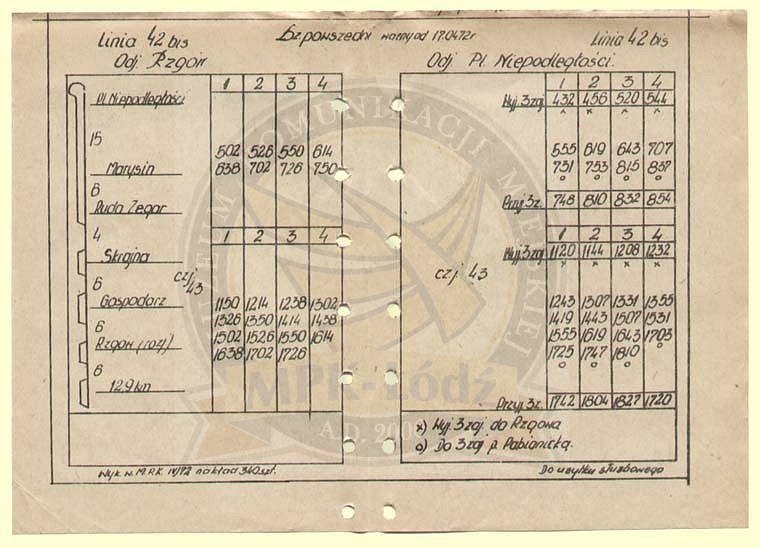 Linia 42 bis
Dz powszedni ważny od 17.04.72 r
Linia 42 bis
Odj. Rzgów
Odj Pl. Niepodległości.
1 2 3 4
Pl. Niepodległości
15
502 526 550 614
Marysin 638 702 726 750
6
Ruda Zegar
4
1 2 3 4
Skrajna
6
czj 43
Gospodarz 1150 1214 1238 1302
6
1326 1350 1414 1438
Rzgów (rozj) 1502 1526 1550 1614
1638 1702 1726
6
12,9 km
Wyk. w. M.P.K. IV/72 nakład 340 szt.
1 2 3 4
Wyj. 3 zaj. 432 456 520 544
x x x x
555 619 643 707
731 753 815 837
o o o o
Przyj 3 z. 748 810 832 854
1 2 3 4
Wyj. 3 zaj 1120 1144 1208 1232
x x x x
czj. 43
1243 1307 1331 1355
1419 1443 1507 1531
1555 1619 1643 1703
o
1725 1747 1810
o o o
Przyj. 3z. 1742 1804 1827 1720
x) Wyj. 3 zaj. do Rzgowa
o) Do 3 zaj p. Pabianicką.
Do użytku służbowego
MUZEUM KOMUNIKACJI MIEJSKIEJ
MPK-Łódź